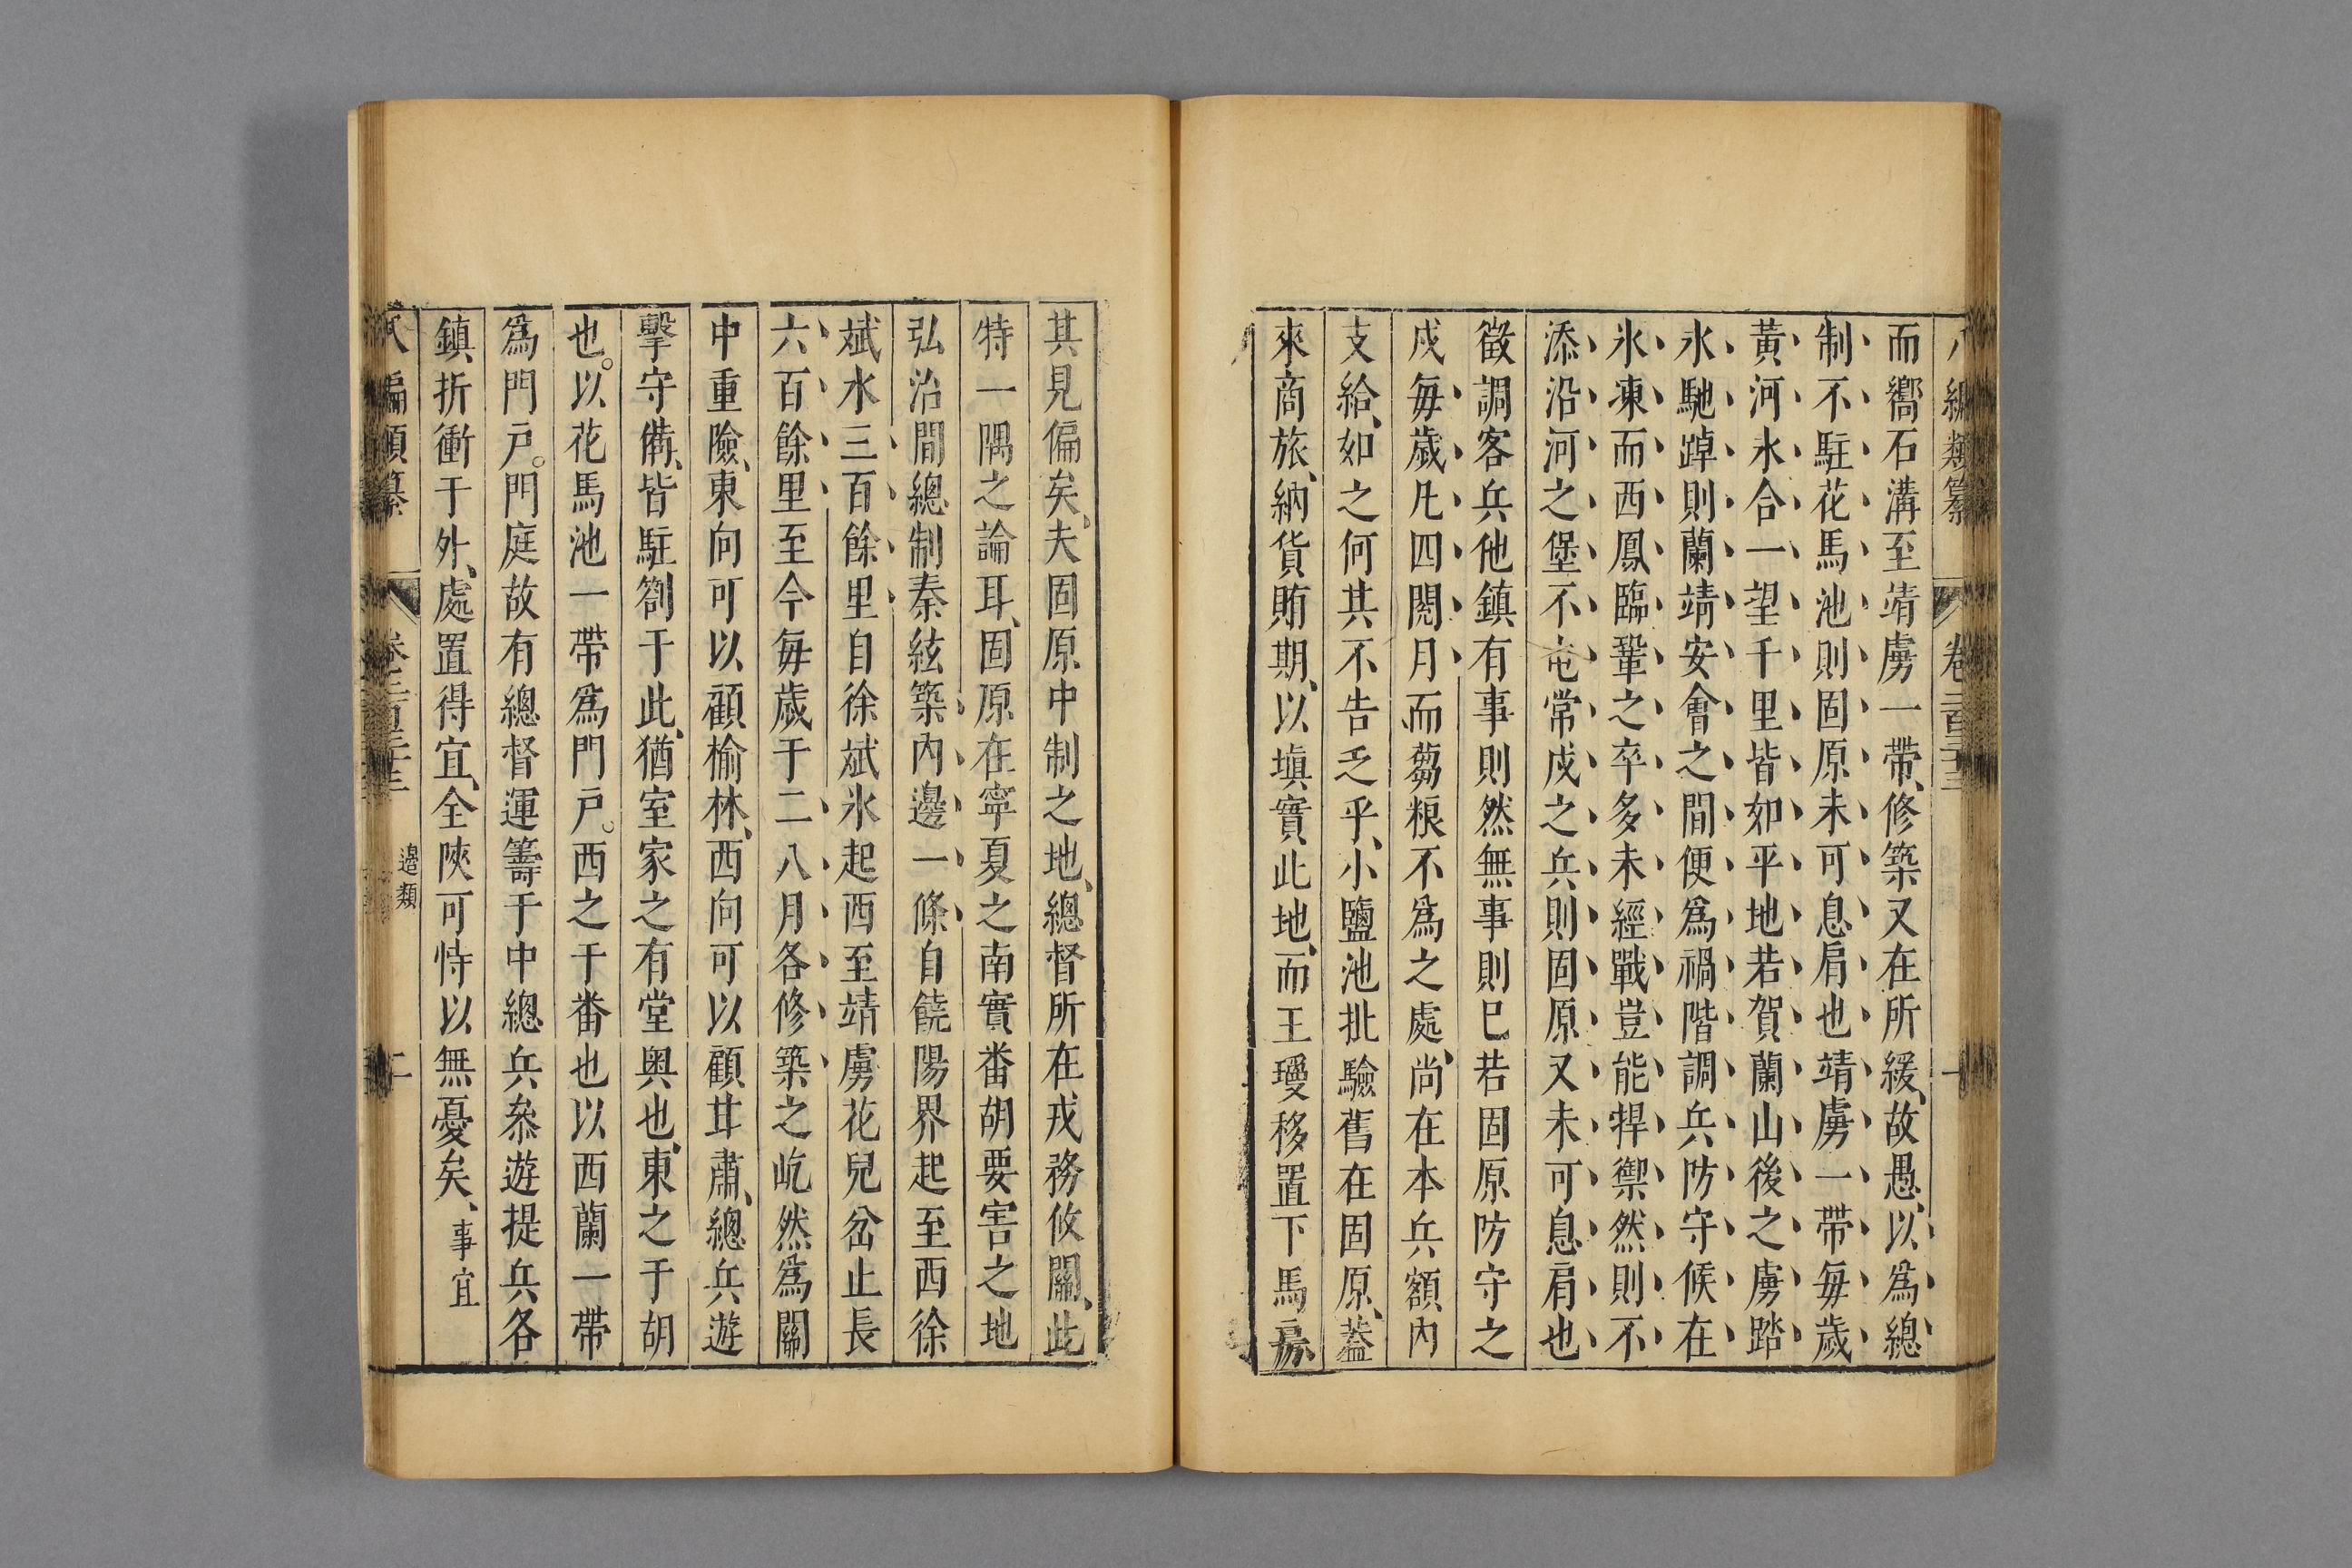 八編類纂 卷二百三十三 一
而嚮石溝至靖虜一帶、修築又在所緩、故愚、以爲總
制不駐花馬池則固原未可息肩也靖虜一帶每歲
黃河氷合一望千里皆如平地若賀蘭山後之虜踏
氷馳踔則蘭靖安會之間便爲禍階調兵防守候在
氷凍而西鳳臨鞏之卒多未經戰豈能捍禦然則不
添沿河之堡不屯常戍之兵則固原又未可息肩也
徵調客兵他鎮有事則然無事則已若固原防守之
戍每歲凡四閱月而蒭粮不爲之處、尚在本兵額內
支給、如之何其不告乏乎、小鹽池批驗舊在固原、蓋
來商旅、納貨賄期、以塡實此地、而王瓊移置下馬房
其見偏矣、夫固原中制之地、總督所在戎務攸關、此
特一隅之論耳、固原在寧夏之南實畨胡要害之地
弘治間總制秦紘築內邊一條自饒陽界起至西徐
斌水三百餘里自徐斌氷起西至靖虜花兒岔止長
六百餘里至今每歲于二八月各修築之屹然爲關
中重險、東向可以顧榆林、西向可以顧甘肅、總兵遊
擊守備、皆駐劄于此、猶室家之有堂奧也、東之于胡
也。以花馬池一帶爲門戸。西之于畨也以西蘭一帶
爲門戸。門庭故有總督運籌于中總兵叅遊提兵各
鎮、折衝于外、處置得宜、全陝可恃以無憂矣、事宜
八編類纂 卷二百三十三 邊類 二